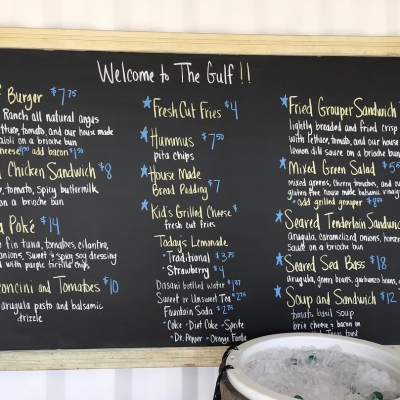 Welcome to The Gulf!!
Burger $7.75
Ranch all natural angus
lettuce, tomato, and our house made
aioli on a brioche bun
cheese add bacon
Chicken Sandwich $8
tomato, spicy buttermilk
on a brioche bun
Poké $14
fin tuna, tomatoes, cilantro,
onions, sweet & spicy soy dressing
with purple tortilla chips
and Tomatoes $10
arugula pesto and balsamic
drizzle
Fresh Cut Fries $4
Hummus $7.50
pita chips
House Made
Bread Pudding $7
Kid's Grilled Cheese $
fresh cut fries
Today's Lemonade
Traditional $3.75
Strawberry $4
Dasani bottled water
Sweet or Unsweet Tea
Fountain Soda
Coke - Diet Coke - Sprite
Dr. Pepper - Orange Fanta
Fried Grouper Sandwich
lightly breaded and fried crisp
with lettuce, tomato, and our house
lemon dill sauce on a brioche bun
Mixed Green Salad
mixed greens, cherry tomatoes, and
gluten free house made balsamic
add grilled grouper
Seared Tenderloin Sandwich
arugula, caramelized onions,
sauce on a brioche bun
Seared Sea Bass $18
arugula, green beans, garbanzo
Soup and Sandwich $12
tomato basil soup
brie cheese & bacon on
toast